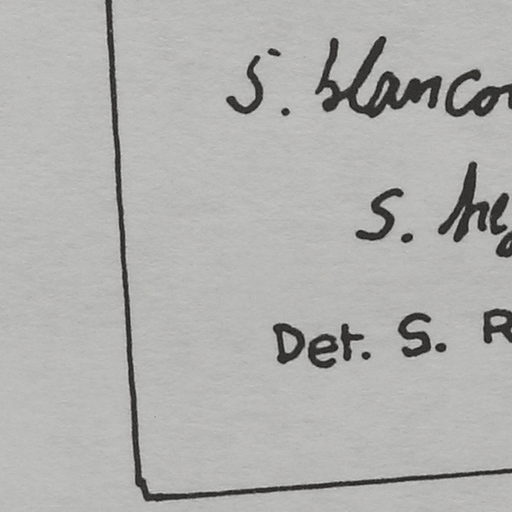 S. blanco
S.
Det. S. R